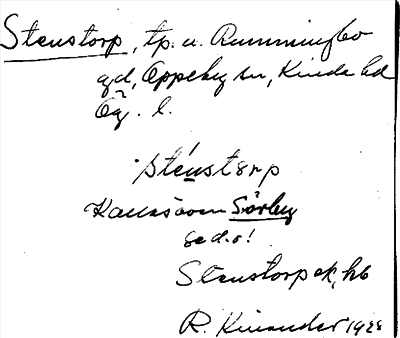 Stenstorp, tp. u. Rumminsbo
gd, Oppeby sn, Kinda hd
Ög. l.
sténstorp
Kallas även Sörby
se d.o!
Stenstorp ek, hb
R. Kinander 1928